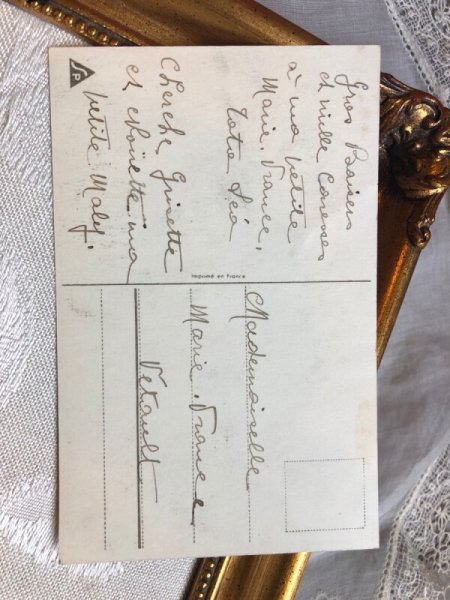 Gros Baisers
et mille caresses
à ma petite
Marie. France,
tata Léa
Cherche Ginette
et ma
petite
Imprimé en France
Mademoiselle
Marie. France
Vétault